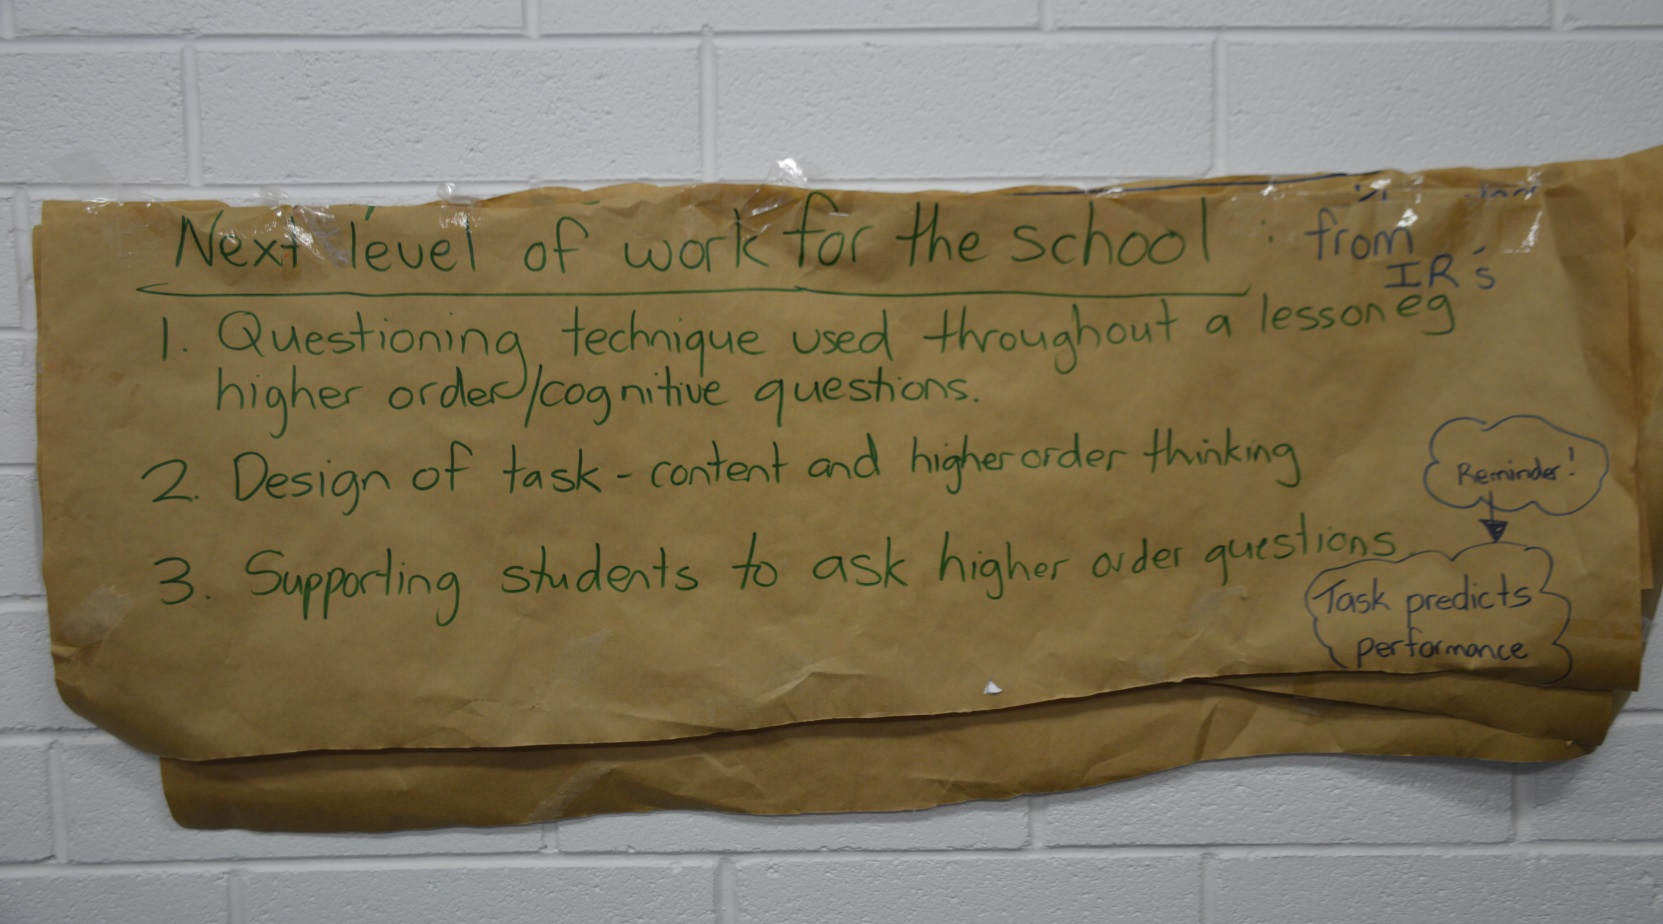 Next level of work for the school : from
IR's
1. Questioning technique used throughout a lesson eg
higher order/cognitive questions.
2. Design of task - content and higher order thinking
Reminder!
3. Supporting students to ask higher order questions
Task predicts
performance